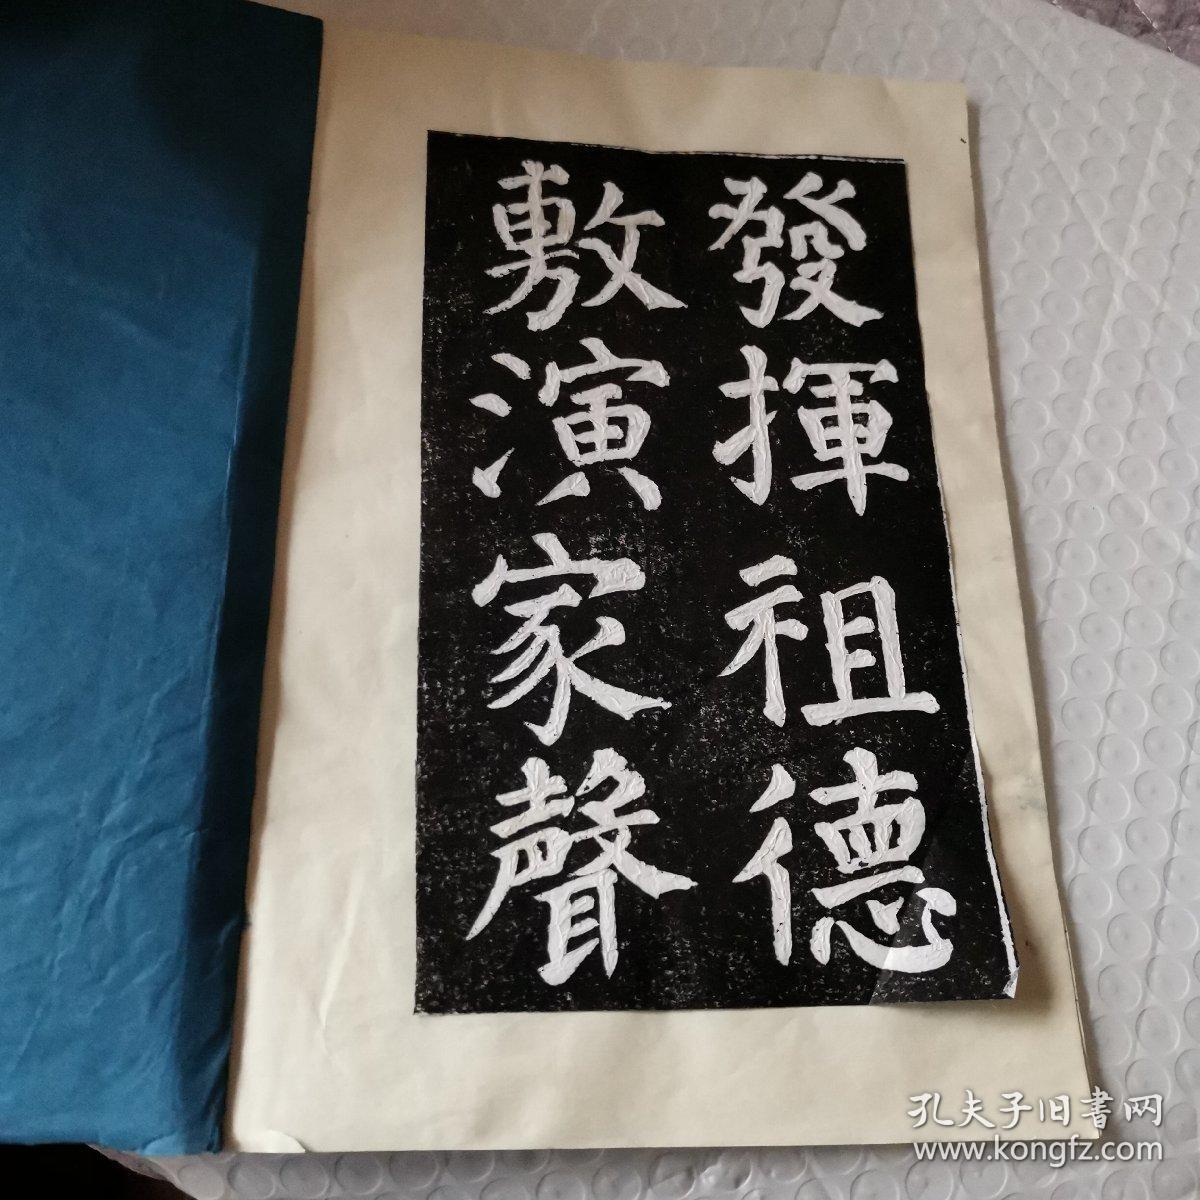 發揮祖德
敷演家聲
孔夫子旧書网
www.kongfz.com